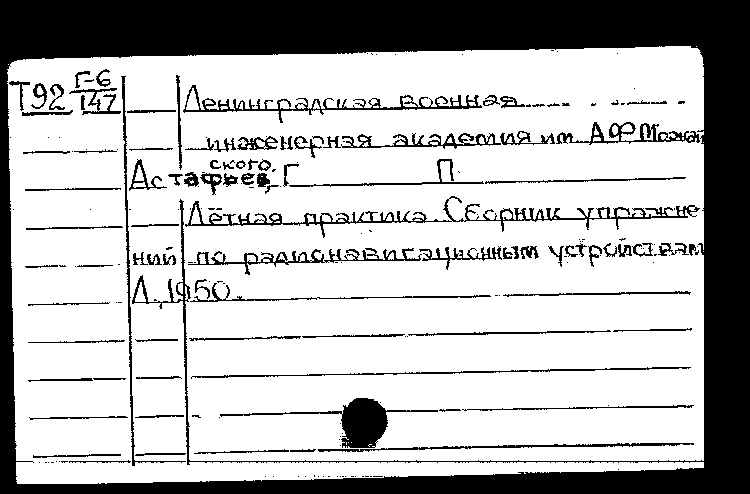 Т92 Г-6/147
Ленинградская военная
инженерная академия им А.Ф.Можай
ского.
Астафьев, Г П.
Лётная практика. Сборник упражне
ний по радионавигационным устройствам
Л., 1950.